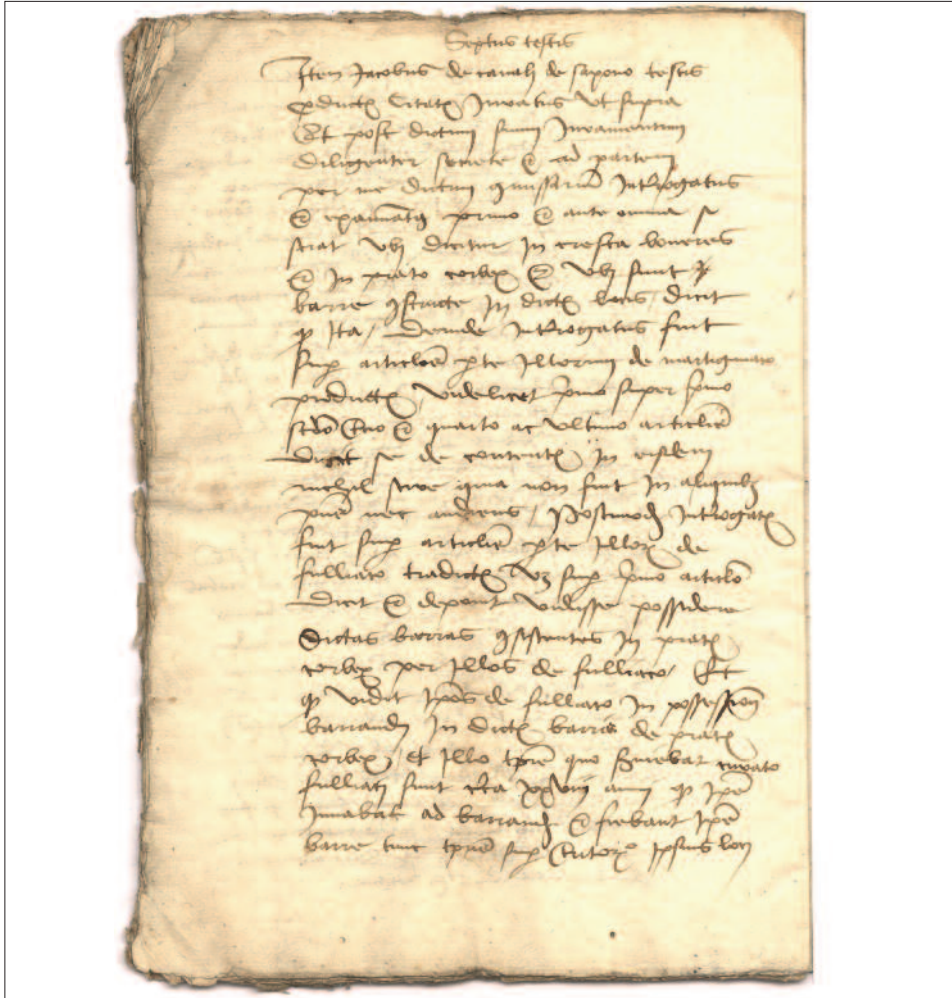 Septus testis
Item Jacobus de canali de saxono testis
productus citatus Juratus ut supra
Et post dictum suum Juramentum
diligenter secrete & ad partem
per me dictum commissarium Interrogatus
& examinatus primo & ante omnia si
sciat ubi dicitur In cresta boveres
& In prato corbex & ubi sunt
barre constructe In dictis locis dicit
quod Ita / Deinde Interrogatus fuit
super articulos parte Illorum de martigniaco
productis videlicet primo super primo
secundo tertio & quarto ac ultimo articulis
Dicit se de contentis In eisdem
nichil scire quia non fuit In aliquibus
presens nec audiens / Postmodum Interrogatus
fuit super articulis parte Illorum de
fulliaco tradictis super primo articulo
Dicit & deponit vidisse possidere
Dictas barras consistentes In pratis
corbex per Illos de fulliaco / Et
quod vidit Ipsos de fulliaco In possessione
barrandi In dictis barris de pratis
corbex / Et Illo tempore quo serviebat curato
fulliaci sunt circa xxviij anni quod Ipse
Juvabat ad barrandum & fiebant Ipse
barre tunc tempore super territorio Ipsius loci